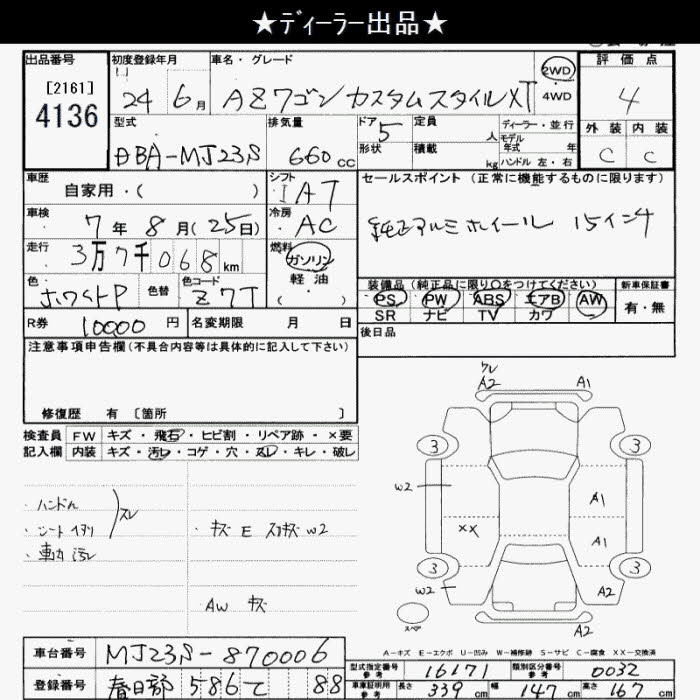 ★ディーラー出品★
出品番号 初度登録年月 車名・グレード 2WD 評価点
[2161] 4136
24 6月 AZワゴン カスタムスタイルXT 4WD 4
型式 排気量 ドア 5 定員 人 ディーラー・並行 外装 内装
DBA-MJ23S 660cc 形状 積載 kg モデル年式 年式 ハンドル 左・右 C C
車歴 自家用・( ) シフト IAT セールスポイント (正常に機能するものに限ります)
車検 7年8月(25日) 冷房 AC 純正アルミホイール 15インチ
走行 3万7千068km 燃料 ガソリン
軽油
( )
色 ホワイトP 色替 色コード Z7T
装備品(純正品に限り〇をつけてください) 新車保証書
PS PW ABS エアB AW 有・無
SR ナビ TV カワ
R券 10000円 名変期限 月 日 後日品
注意事項申告欄(不具合内容等は具体的に記入して下さい)
修復歴 有 [箇所 ]
検査員 FW キズ・飛石・ヒビ割・リペア跡・×要
記入欄 内装 キズ・汚レ・コゲ・穴・スレ・キレ・破レ
・ハンドル
・シート イタリ スレ
・車内 汚レ
・キズ E スリキズ W2
AW キズ
クレ
A2 A1
3 3
W2 A1
XX A1
3 3
W2 A2
スペア A2
A-キズ E-エクボ U-凹み W-補修跡 S-サビ C-腐食 XX-交換済
車台番号 MJ23S-870006
型式指定番号 参考 16171 類別区分番号 参考 0032
登録番号 春日部 586 て 88
車庫証明用 参考 長さ 339cm 幅 147cm 高さ 167cm